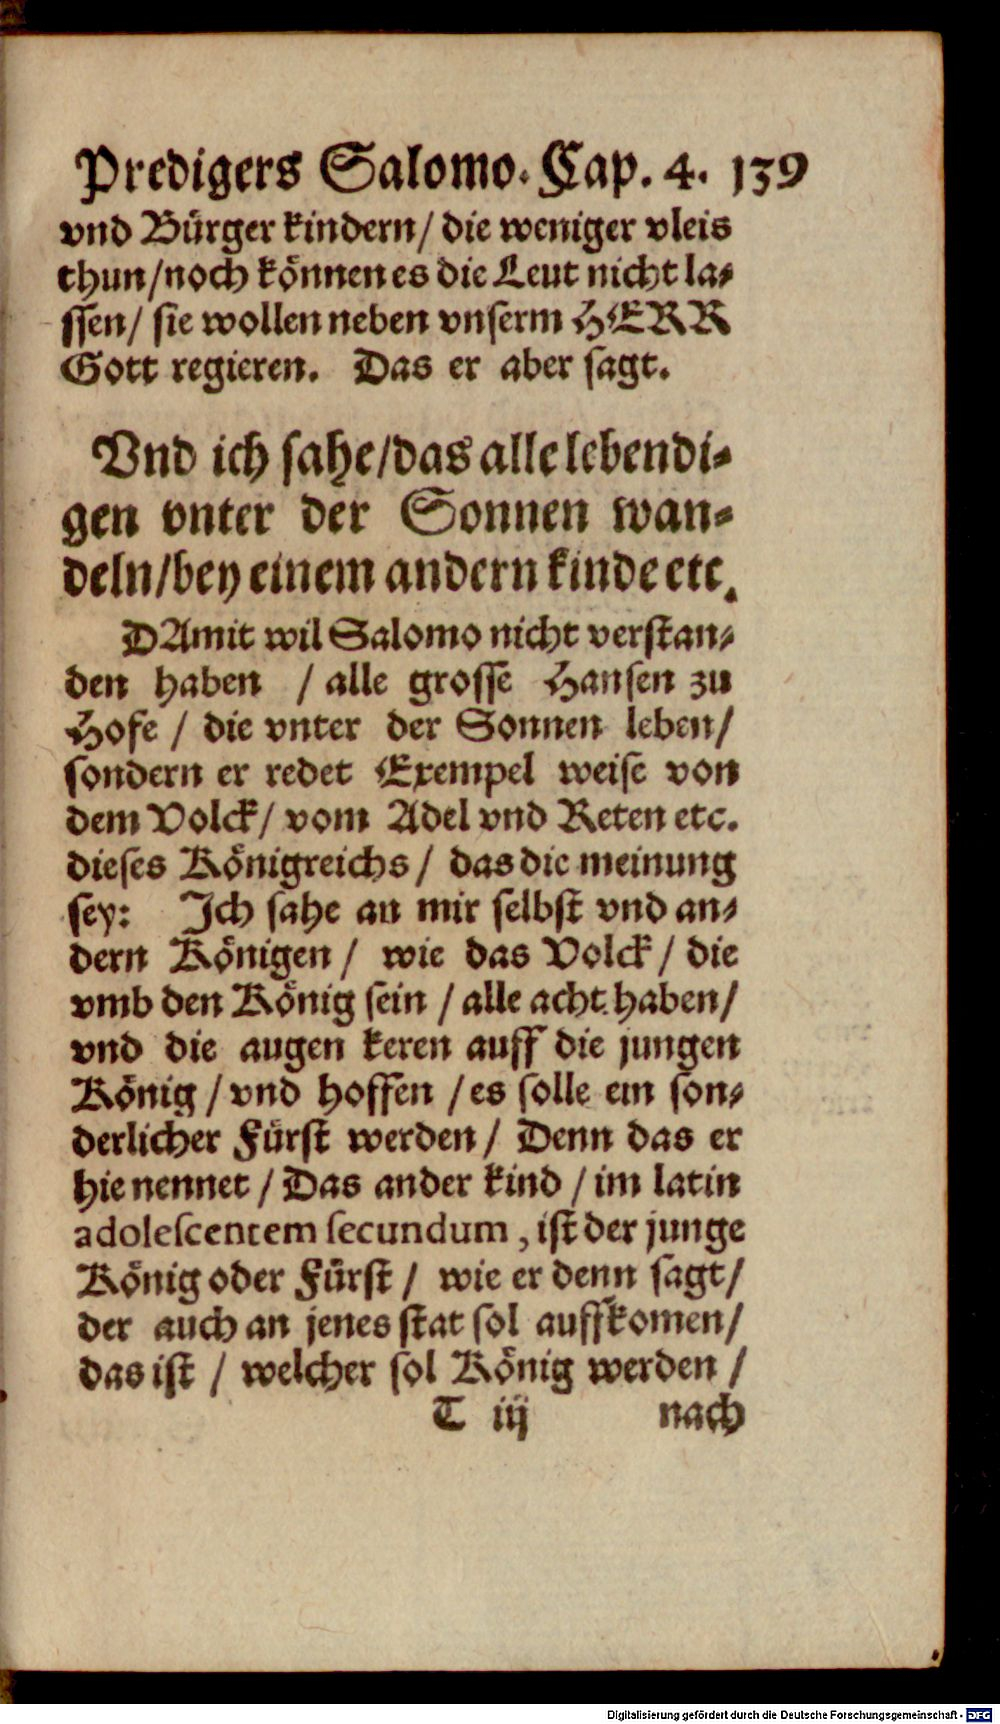 Predigers Salomo. Cap. 4. 139
vnd Bürger kindern/ die weniger vleis
thun/noch können es die Leut nicht la-
ssen/ sie wollen neben vnserm HERR
Gott regieren. Das er aber sagt.
Vnd ich sahe/das alle lebendi-
gen vnter der Sonnen wan-
deln/bey einem andern kinde etc.
DAmit wil Salomo nicht verstan-
den haben / alle grosse Hansen zu
Hofe / die vnter der Sonnen leben/
sondern er redet Exempel weise von
dem Volck/ vom Adel vnd Reten etc.
dieses Königreichs / das die meinung
sey: Ich sahe an mir selbst vnd an-
dern Königen / wie das Volck / die
vmb den König sein / alle acht haben/
vnd die augen keren auff die jungen
König / vnd hoffen / es solle ein son-
derlicher Fürst werden / Denn das er
hie nennet / Das ander kind / im latin
adolescentem secundum, ist der junge
König oder Fürst / wie er denn sagt/
der auch an jenes stat sol auffkomen/
das ist / welcher sol König werden /
T iij nach
Digitalisierung gefördert durch die Deutsche Forschungsgemeinschaft - DFG